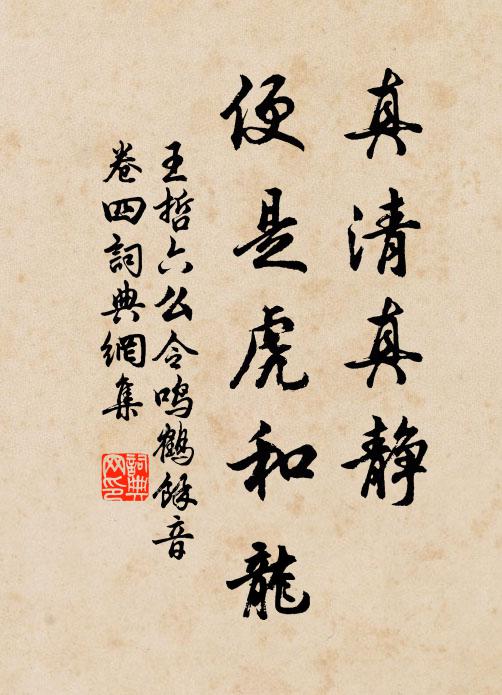 真清真静
便是虎和龍
王哲六么令鳴鶴餘音
卷四詞典網集
詞典网印